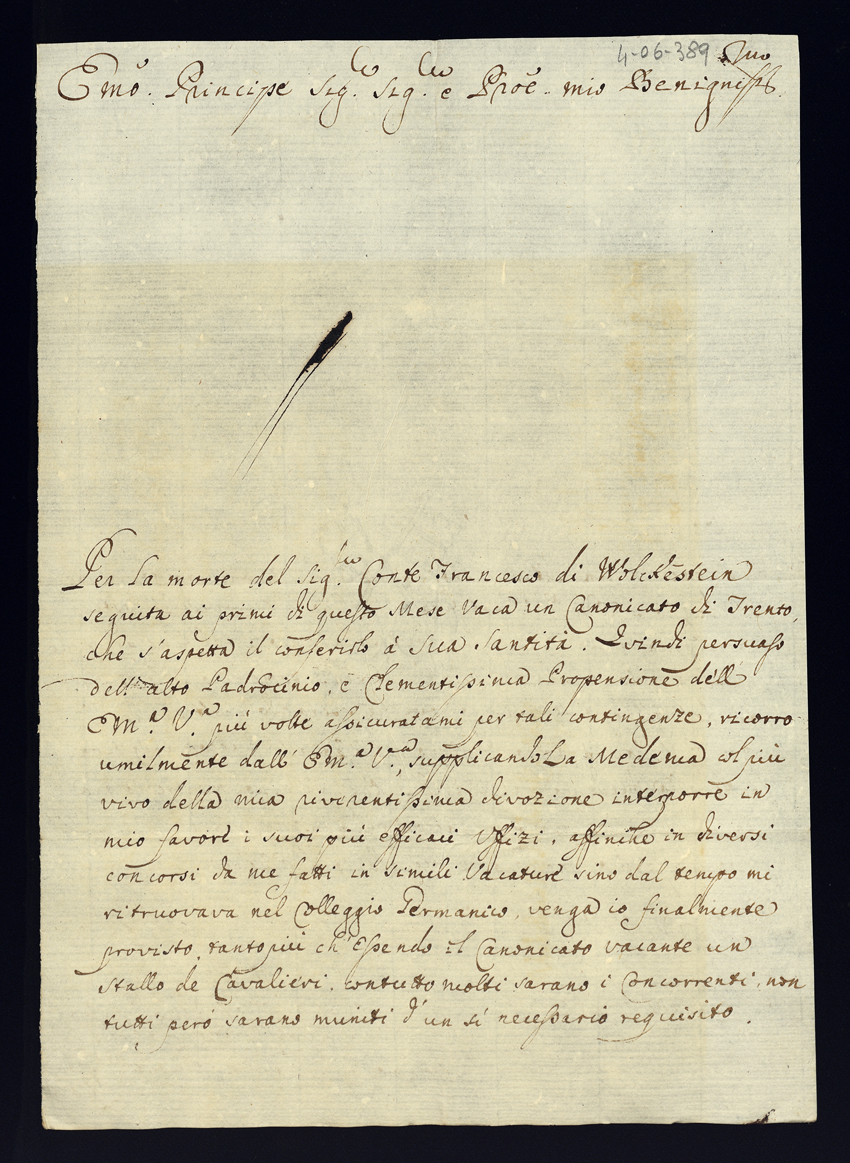 4-06-389
Emô. Principe Sig.re Sig.re e Proê. mio Benigniss.mo
Per la morte del Sig.re Conte Francesco di Wolckestein
seguita ai primi di questo Mese vaca un Canonicato di Trento,
che s'aspetta il conferirlo á Sua Santitá. Quindi persuaso
dell'alto Padrocinio, e Clementissima Propensione dell'
Em.a V.a piú volte assicuratami per tali contingenze, ricorro
umilmente dall' Em.a V.a, supplicando La Medema col piú
vivo della mia riverentissima divozione interporre in
mio favore i suoi piú efficaci Uffizi, affinche in diversi
concorsi da me fatti in simili Vacature sino dal tempo mi
ritruovava nel Colleggio Germanico, venga io finalmente
provisto, tanto piú ch'Essendo il Canonicato vacante un
stallo de Cavalieri, contutto molti sarano i Concorrenti, non
tutti peró sarano muniti d'un sí necessario requisito.